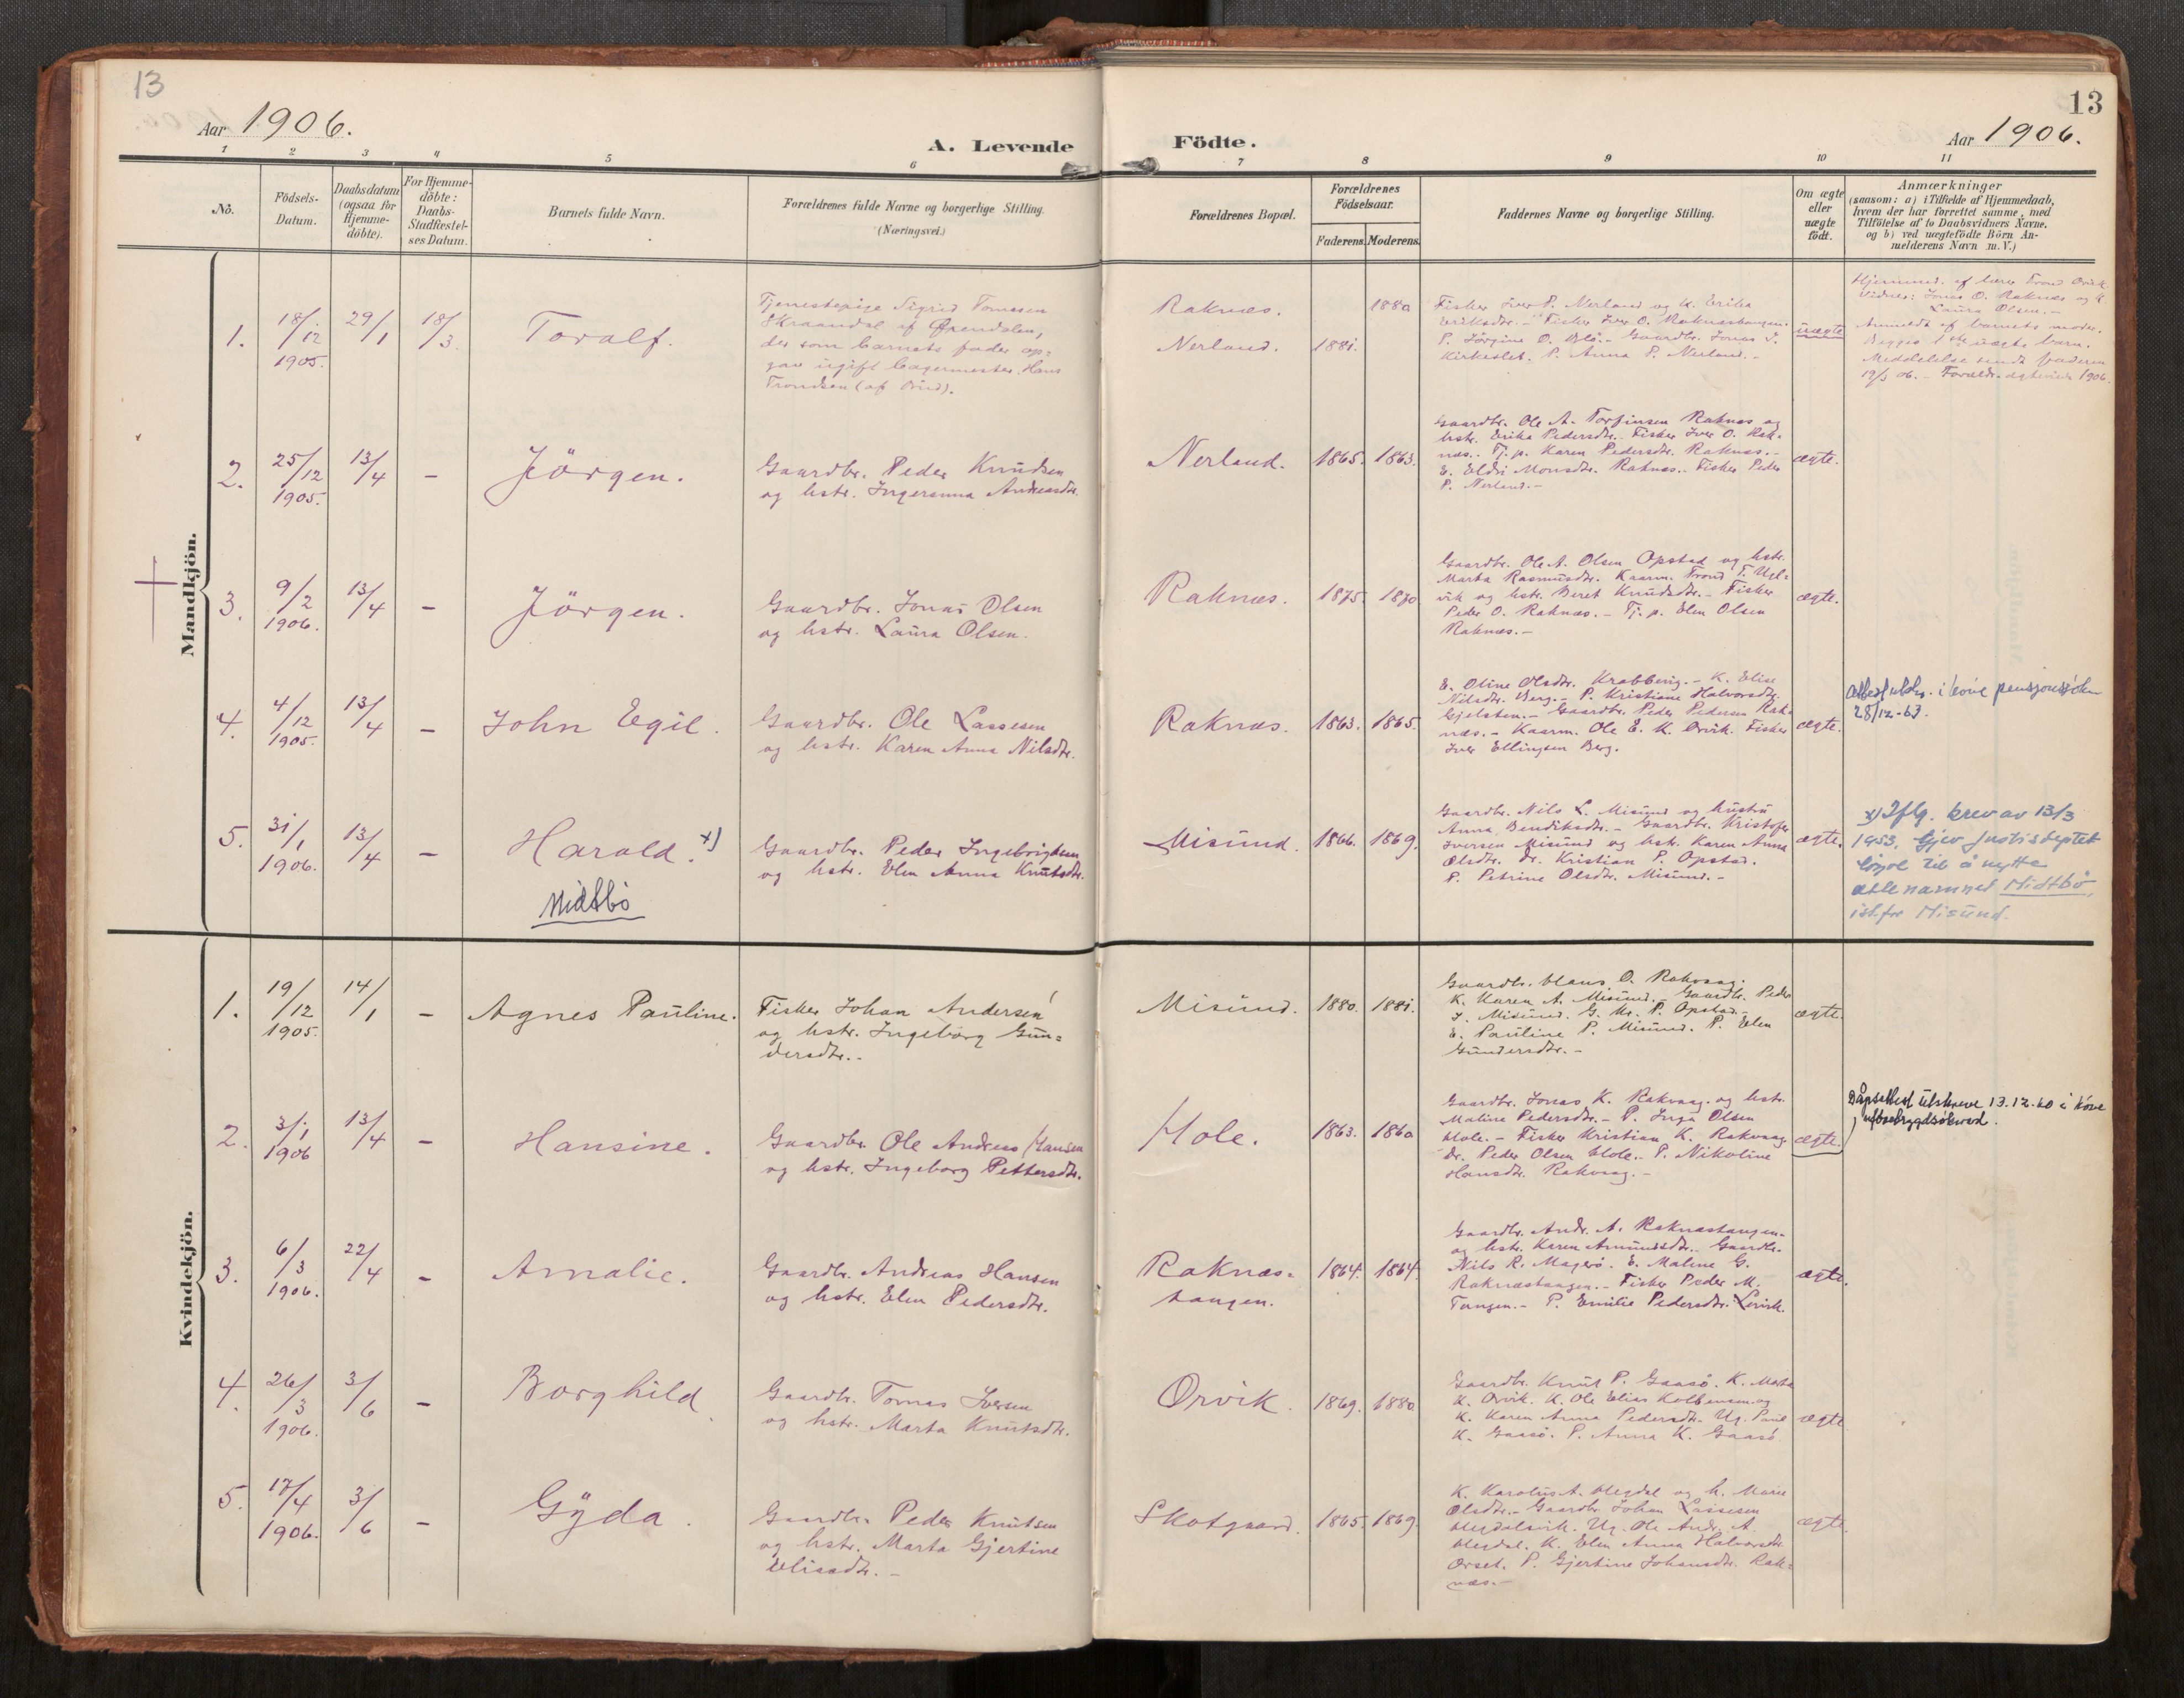 13
13
Aar 1906.
Aar 1906.
A. Levende
Födte.
1 2 3 4 5 6 7 8 9 10 11
No.
Födsels-
Datum.
Daabsdatum
(ogsaa for
Hjemme-
döbte).
For Hjemme-
döbte:
Daabs-
Stadfestel-
ses Datum.
Barnets fulde Navn.
Forældrenes fulde Navne og borgerlige Stilling.
(Næringsvei.)
Forældrenes Bopæl.
Forældrenes
Födselsaar.
Faderens.
Moderens.
Faddernes Navne og borgerlige Stilling.
Om ægte
eller
uægte
födt.
Anmærkninger
(saasom: a) i Tilfælde af Hjemmedaab,
hvem der har forrettet samme, med
Tilföielse af to Daabsvidners Navne,
og b) ved uægtefödte Börn An-
melderens Navn m. V.)
Mandkjön.
1.
18/12
1905.
29/1
18/3.
Toralf.
Tjenestepige Sigrid Tomasen
Skraandal af Ørendalen,
der som barnets fader op-
gav ugift bagermester Hans
Trondsen
Raknæs.
Nerland.
1881.
1880
Fisker Iver P. Nerland og K. Erika
Eriksdtr. - Fisker Iver O. Raknæstangen.
P. Jörgine O. - Gaardbr. Jonas
P. Anna P. Nerland. -
uægte
Hjemmed. af lærer Trond Orvik
Vidner: Jonas O. Raknæs og h.
Laura Olsen. -
Anmeldt af barnets moder.
Begges 1ste uægte barn.
Meddelelse sendt faderen
19/3 06. - 1906.
2.
25/12
1905.
13/4
-
Jörgen.
Gaardbr. Peder Knudsen
og hstr. Ingeranna Andreasdtr.
Nerland.
1865.
1863.
Gaardbr. Ole A. Torfinsen Raknæs og
hstr. Erika Pedersdtr. - Fisker Iver O. Rak-
næs. - Tj. p. Karen Pedersdtr. Raknæs. -
E. Eldri Monsdtr. Raknæs. - Fisker Peder
P. Nerland. -
ægte.
3.
9/2
1906.
13/4
-
Jörgen.
Gaardbr. Jonas Olsen
og hstr. Laura Olsen.
Raknæs.
1875.
1870
Gaardbr. Ole A. Olsen Opstad og hstr.
Marta Rasmusdtr. Kaarm. Trond T. Ugl-
vik og hstr. Beret Knudsdtr. - Fisker
Peder O. Raknæs. - Tj. p. Elen Olsen
Raknæs. -
ægte.
4.
4/12
1905.
13/4
-
John Egil.
Gaardbr. Ole Lassesen
og hstr. Karen Anna Nilsdtr.
Raknæs.
1863.
1865.
E. Oline Olsdtr. Krabberig. - K. Elise
Nilsdtr. Berg. - P. Kristiane Halvorsdtr.
Gjelsten. - Gaardbr. Peder Pedersen Rak-
næs. - Kaarm. Ole E. K. Orvik. Fisker
Iver Ellingsen Berg.
ægte.
i höve pensjonssöken
28/12-63.
5.
31/1
1906.
13/4
-
Harald. x)
Midtbö
Gaardbr. Peder Ingebrigtsen
og hstr. Elen Anna Knutsdtr.
Misund.
1866.
1869.
Gaardbr. Nils L. Misund og hustru
Anna Bendiksdtr. - Gaardbr. Kristofer
Iversen Misund og hstr. Karen Anna
Olsdtr. Dr. Kristian P. Opstad.
P. Petrine Olsdtr. Misund. -
ægte.
x) Iflg. brev av 13/3
1953. gjev Justisdeptet
löyve til å nytte
ættenamnet Midtbö,
ist. for Misund.
Kvindekjön.
1.
19/12
1905.
14/1
-
Agnes Pauline.
Fisker Johan Andersen
og hstr. Ingeborg Gun-
dersdtr. -
Misund.
1880.
1881.
Gaardbr. Hans O. Rakvaag.
K. Karen A. Misund. - Gaardbr. Peder
J. Misund. G. Kr. P. Opstad. -
E. Pauline P. Misund. P. Elen
Gundersdtr. -
ægte.
2.
3/1
1906
13/4
-
Hansine.
Gaardbr. Ole Andreas Hansen
og hstr. Ingeborg Pettersdtr.
Hole.
1863.
1860
Gaardbr. Jonas K. Rakvaag. og hstr.
Maline Pedersdtr. - P. Inga Olsen
Hole. - Fisker Kristian K. Rakvaag
Dr. Peder Olsen Hole. - P. Nikoline
Hansdtr. Rakvaag. -
ægte.
Dåpsattest utskreve 13.12.60 i höve
uföretrygdsöknad.
3.
6/3
1906.
22/4
-
Amalie.
Gaardbr. Andreas Hansen
og hstr. Elen Pedersdtr.
Raknæs-
tangen.
1864.
1864.
Gaardbr. Andr. A. Raknæstangen.
og hstr. Karen Amundsdtr. Gaardbr.
Nils R. Magerö. E. Maline G.
Raknæstangen. - Fisker Peder M.
Tangen. - P. Emilie Pedersdtr. Lervik.
ægte.
4.
26/3
1906.
3/6
-
Borghild.
Gaardbr. Tomas Iversen
og hstr. Marta Knutsdtr.
Orvik.
1869.
1880
Gaardbr. Knut P. Gaasö. K. Marta
K. Orvik. K. Ole Elias Kolbensen og
K. Karen Anna Pedersdtr. Ug. Paul
K. Gaasö. P. Anna K. Gaasö.
ægte
5.
17/4
1906.
3/6
-
Gyda.
Gaardbr. Peder Knutsen
og hstr. Marta Gjertine
Elisedtr. -
Skotgaard.
1865.
1869.
K. Karolus A. Hegdal og h. Marie
Olsdtr. - Gaardbr. Johan Lassesen
Hegdalsvik. Ug. Ole Andr. A.
Hegdal. K. Elen Anna Halvorsdtr.
Orset. P. Gjertine Johansdtr. Rak-
næs. -
ægte.